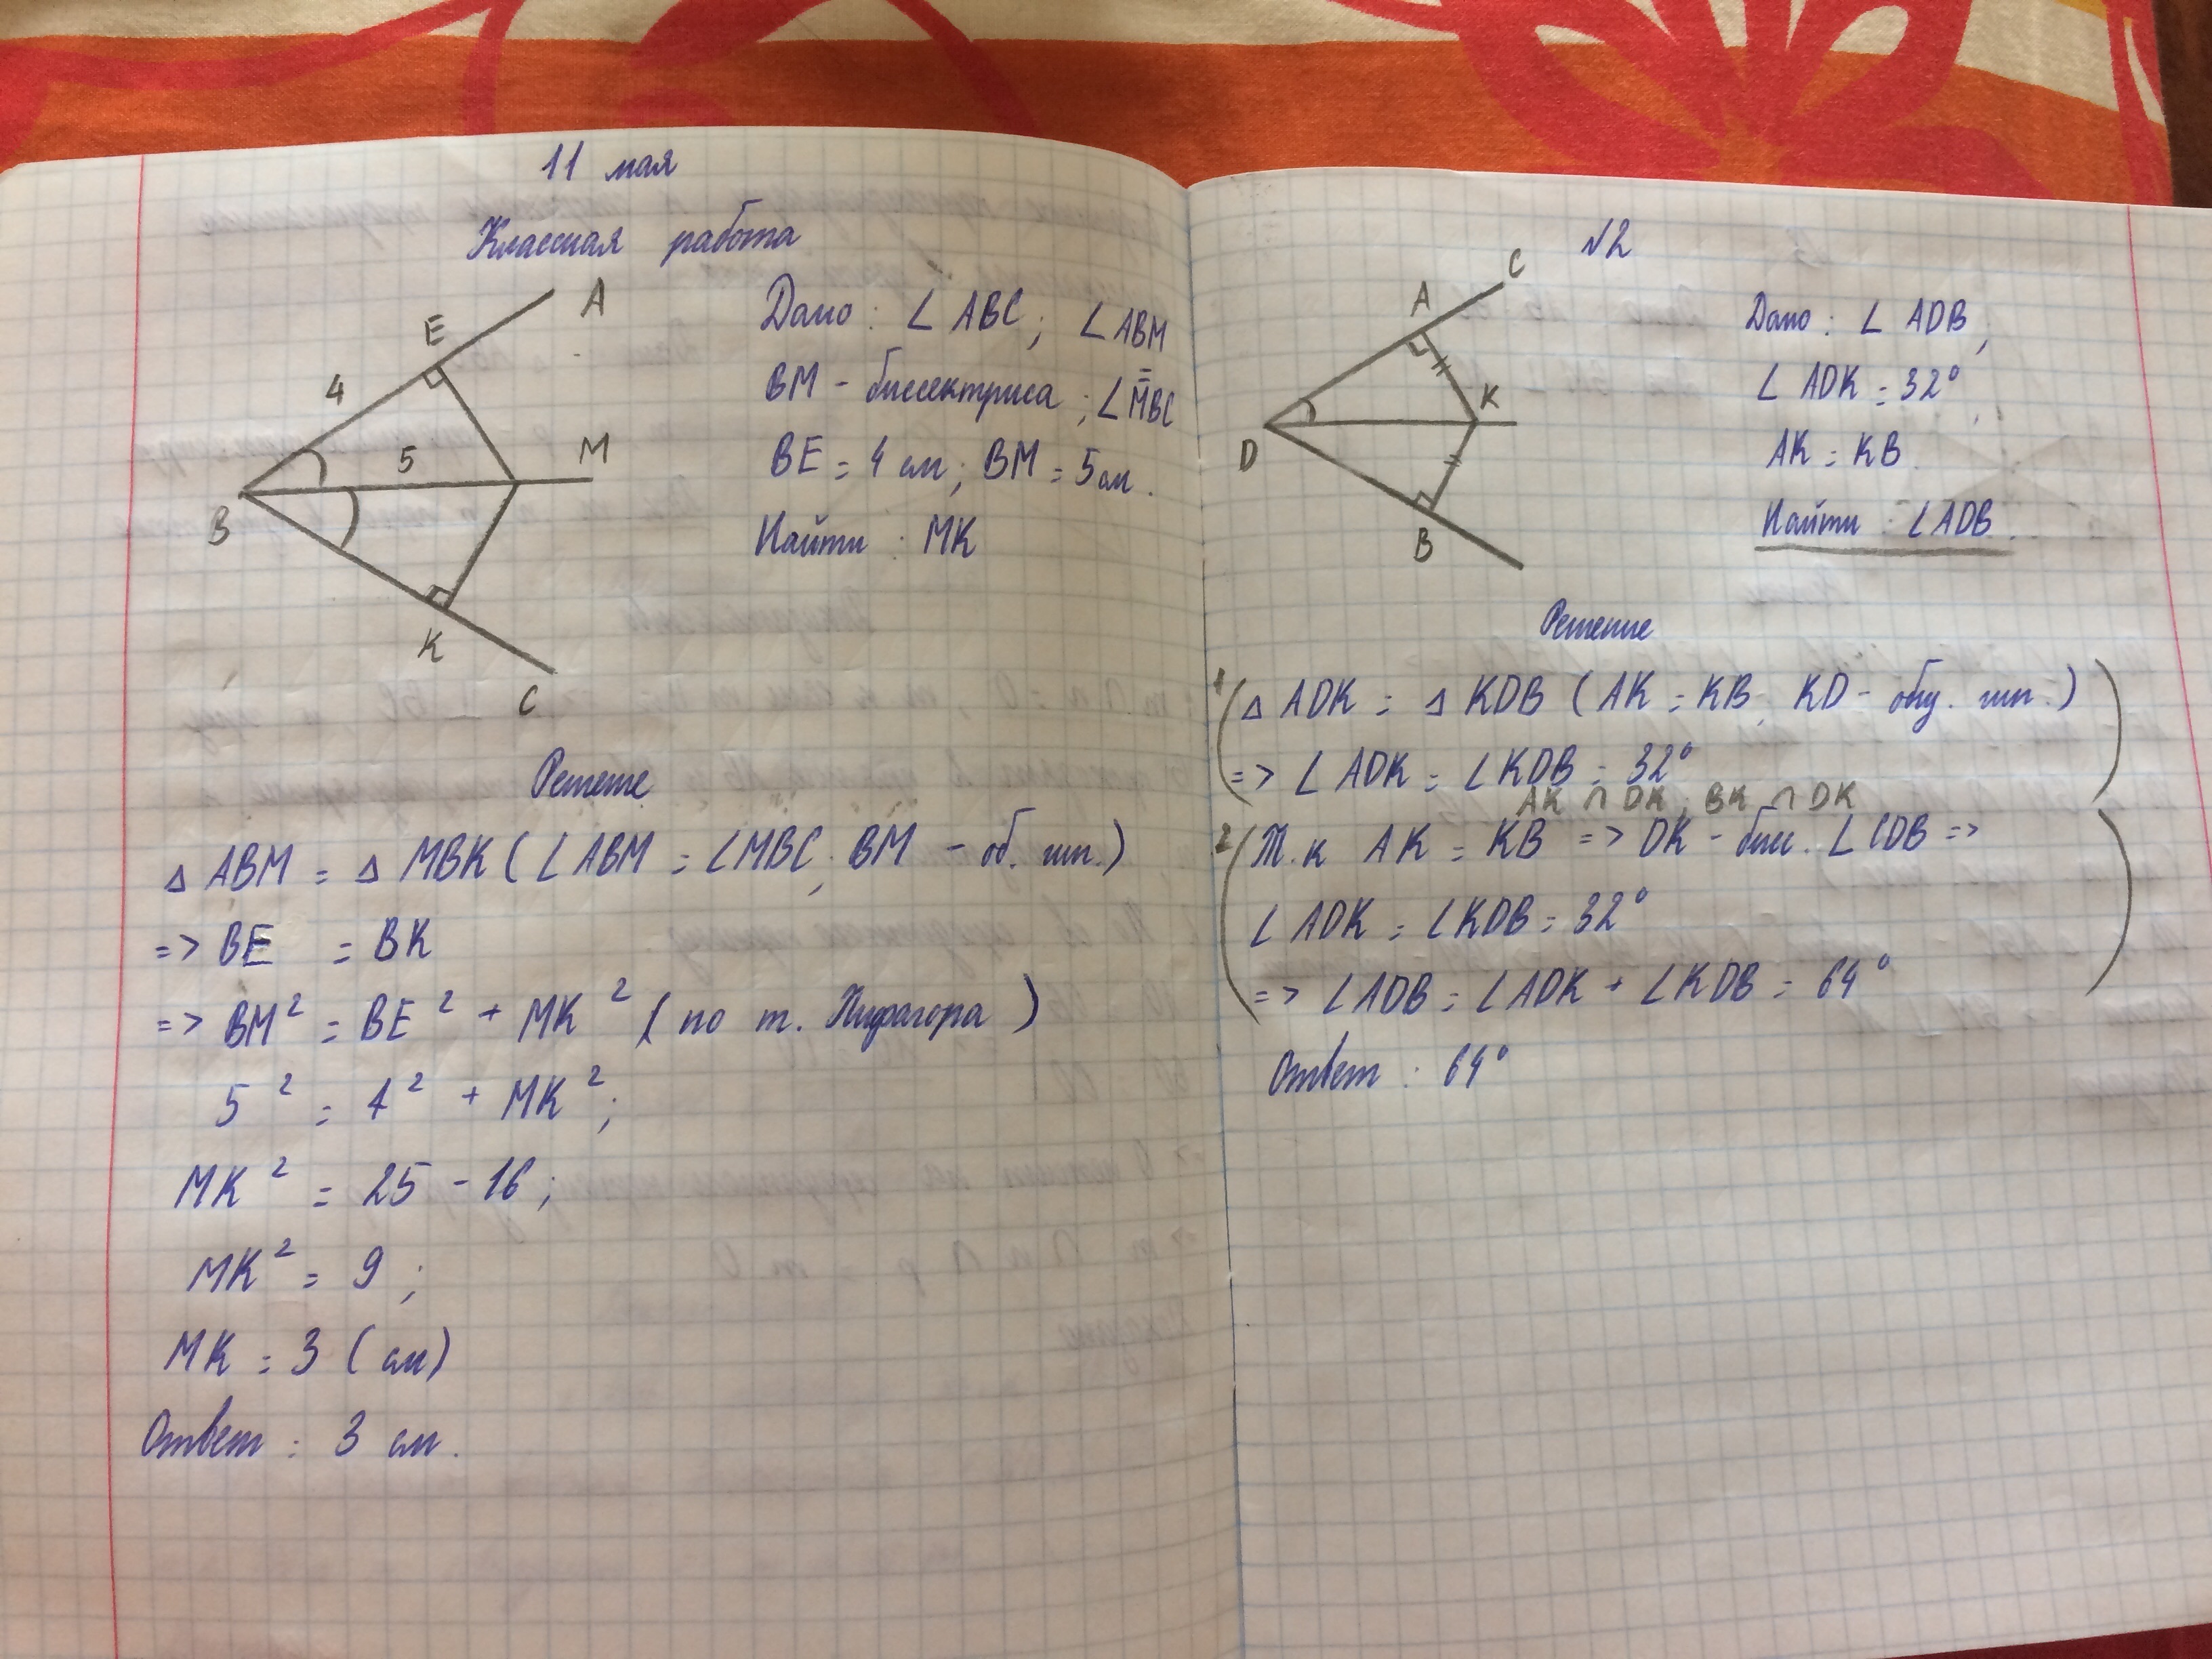 11 мая
Классная работа
A
E
4
5
M
B
K
C
Дано : ∠ ABC ; ∠ ABM
=
BM - биссектриса ; ∠ MBC
BE = 4 см ; BM = 5 см .
Найти : MK
Решение
△ ABM = △ MBK ( ∠ ABM = ∠ MBC ; BM - об. ши. )
=> BE = BK
=> BM² = BE² + MK² ( по т. Пифагора )
5² = 4² + MK² ;
MK² = 25 - 16 ;
MK² = 9 ;
MK = 3 ( см )
Ответ : 3 см .
№2
C
A
K
D
B
Дано : ∠ ADB ,
∠ ADK = 32°
AK = KB
Найти : ∠ ADB .
Решение
1 ( △ ADK = △ KDB ( AK = KB , KD - общ. ши. ) )
=> ∠ ADK = ∠ KDB = 32°
AK ∩ DK ; BK ∩ DK
2 ( Т.к AK = KB => DK - бис. ∠ CDB =>
∠ ADK = ∠ KDB = 32°
=> ∠ ADB = ∠ ADK + ∠ KDB = 64° )
Ответ : 64°